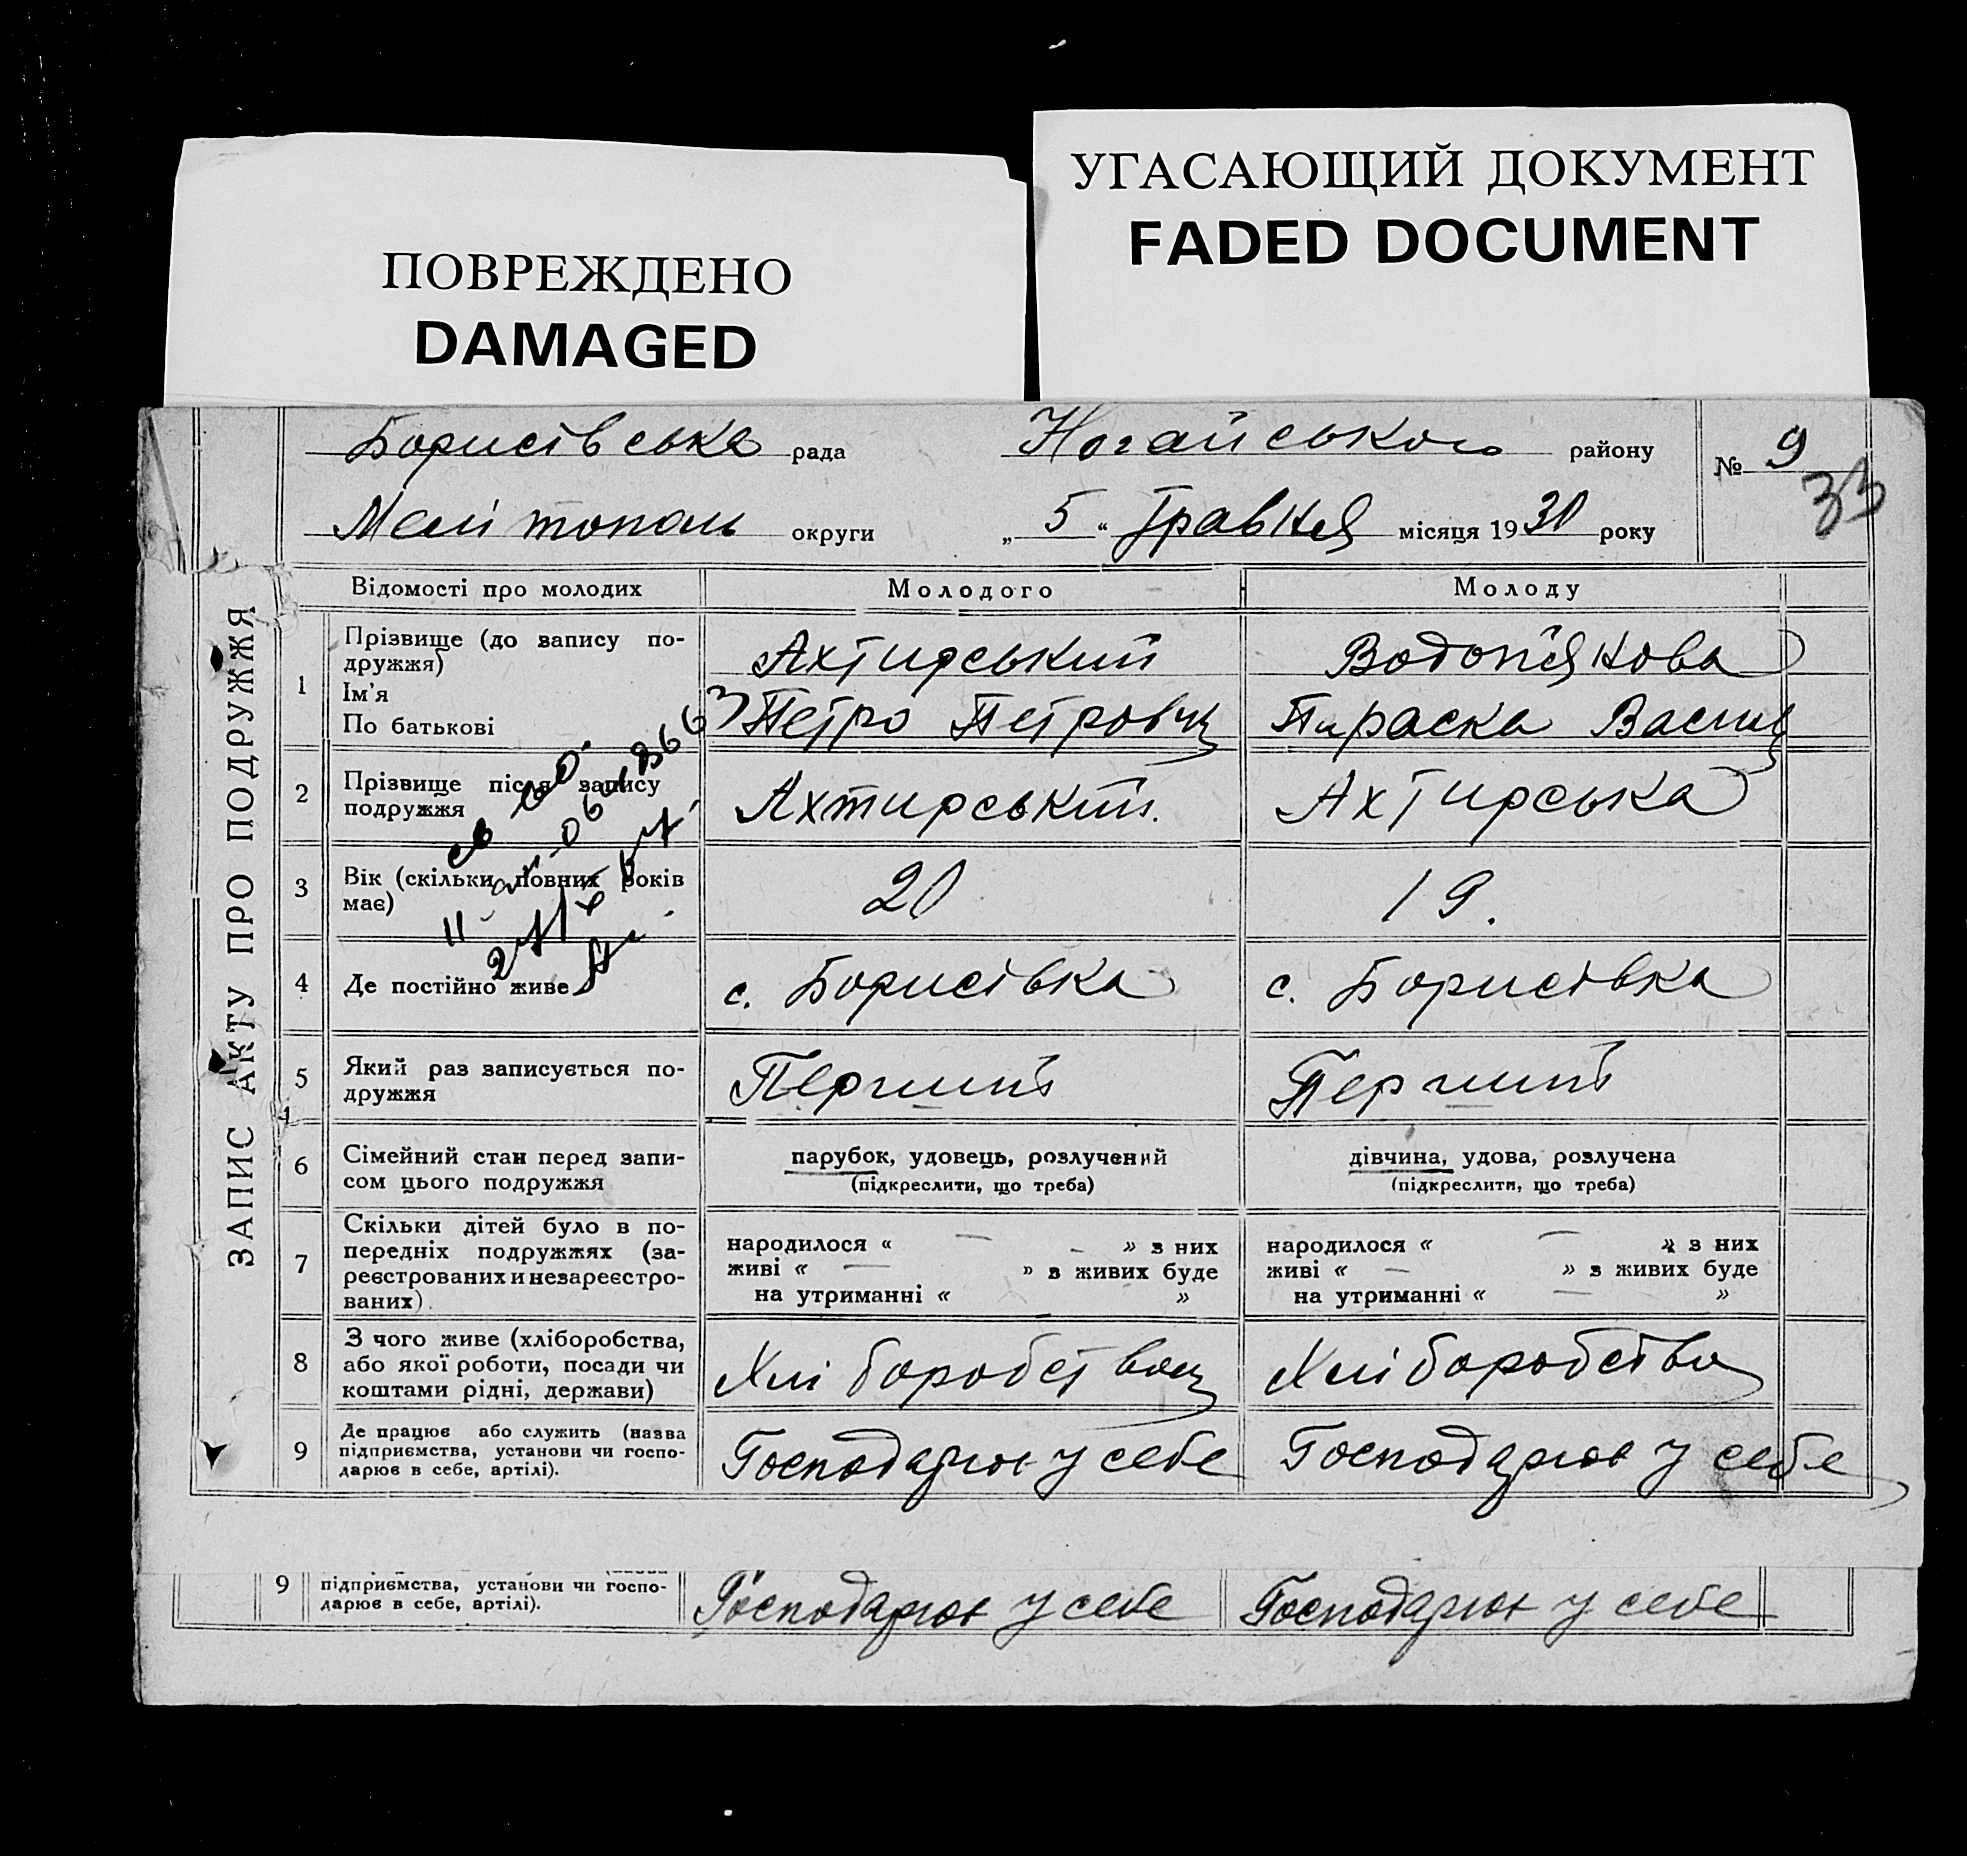 УГАСАЮЩИЙ ДОКУМЕНТ
FADED DOCUMENT
ПОВРЕЖДЕНО
DAMAGED
Борисівська рада Ногайського району № 9
33
Мелітополь округи „ 5 “ Травня місяця 1930 року
ЗАПИС АКТУ ПРО ПОДРУЖЖЯ
Відомості про молодих Молодого Молоду
1 Прізвище (до запису по-
дружжя) Ахтирський Водоп'янова
Ім'я
По батькові Петро Петрович Параска Васил
2 Прізвище після запису
подружжя Ахтирський. Ахтирська
3 Вік (скільки повних років
має) 20 19.
4 Де постійно живе с. Борисівка с. Борисівка
5 Який раз записується по-
дружжя Перший Перший
6 Сімейний стан перед запи-
сом цього подружжя парубок, удовець, розлучений дівчина, удова, розлучена
(підкреслити, що треба) (підкреслити, що треба)
7 Скільки дітей було в по-
передніх подружжях (за-
реєстрованих и незареєстро-
ваних)
народилося « — » з них народилося « — » з них
живі « — » з живих буде живі « — » з живих буде
на утриманні « » на утриманні « — »
8 З чого живе (хліборобства,
або якої роботи, посади чи
коштами рідні, держави) Хліборобством Хліборобства
9 Де працює або служить (назва
підприємства, установи чи госпо-
дарює в себе, артілі). Господарює у себе Господарює у себе
9 підприємства, установи чи госпо-
дарює в себе, артілі). Господарює у себе Господарює у себе